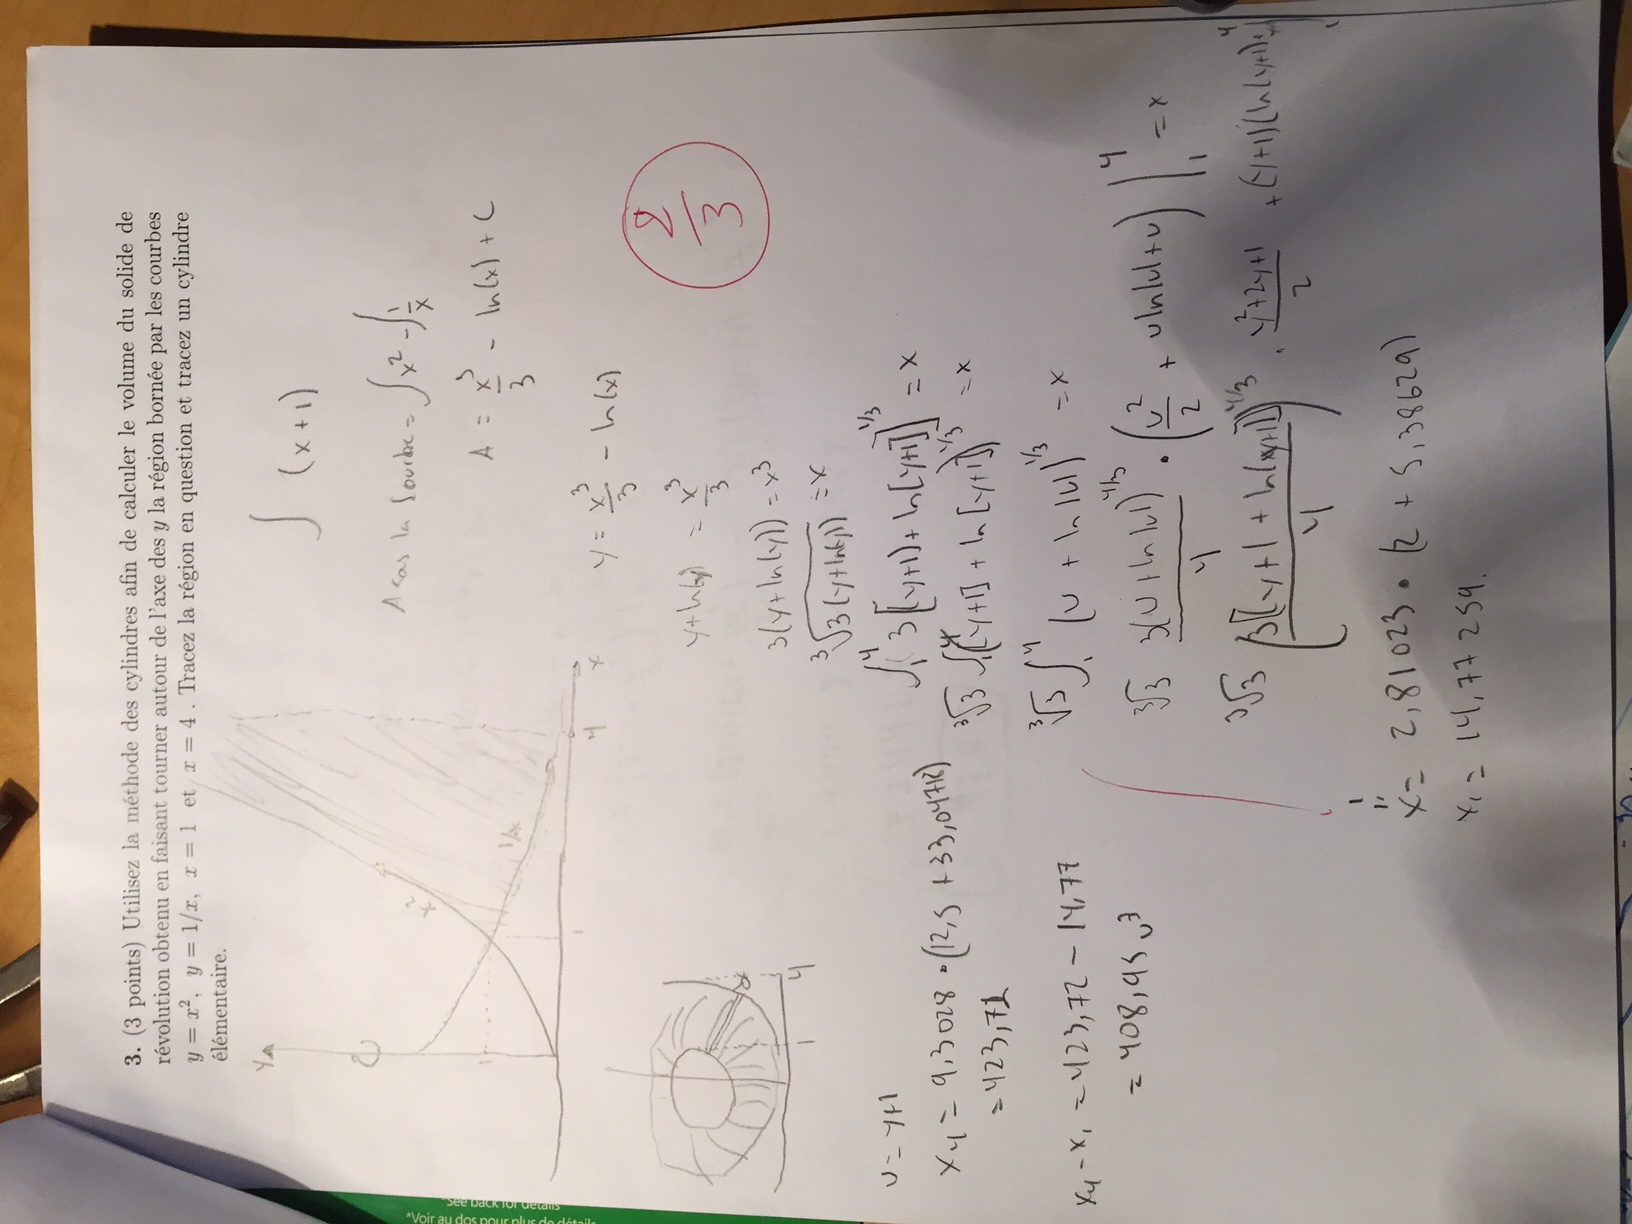 3. (3 points) Utilisez la méthode des cylindres afin de calculer le volume du solide de
révolution obtenu en faisant tourner autour de l'axe des y la région bornée par les courbes
y = x², y = 1/x, x = 1 et x = 4 . Tracez la région en question et tracez un cylindre
élémentaire.
y
x²
1/x
1
1
4
x
∫ (x+1)
= ∫x² - ∫1/x
A = x³/3 - ln(x) + C
2/3
y = x³/3 - ln(x)
y + ln(y) = x³/3
3(y + ln(y)) = x³
³√3(y+ln(y)) = x
1
4
∫₁⁴ 3[(y+1) + ln[y+1]]^1/3 = x
³√3 ∫₁⁴ (y+1] + ln[y+1])^1/3 = x
³√3 ∫₁⁴ (u + ln|u|)^1/3 = x
³√3 3(u+ln|u|)^4/3 / 4 • (u²/2 + u ln|u| + u) |₁⁴ = x
u = y+1
x₄ = 9,3028 • (12,5 + 33,04718)
= 423,72
x₄ - x₁ = 423,72 - 14,77
= 408,95 u³
x = 2,81023 • (2 + 5,38629)
x₁ = 14,77259.
*See back for details
*Voir au dos pour plus de détails